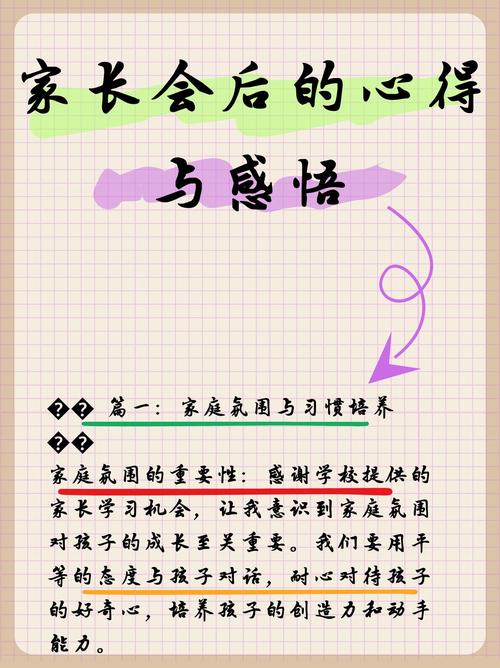 家长会后的心得
与感悟
�� 篇一：家庭氛围与习惯培养
��
家庭氛围的重要性：感谢学校提供的
家长学习机会，让我意识到家庭氛围
对孩子的成长至关重要。我们要用平
等的态度与孩子对话，耐心对待孩子
的好奇心，培养孩子的创造力和动手
能力。